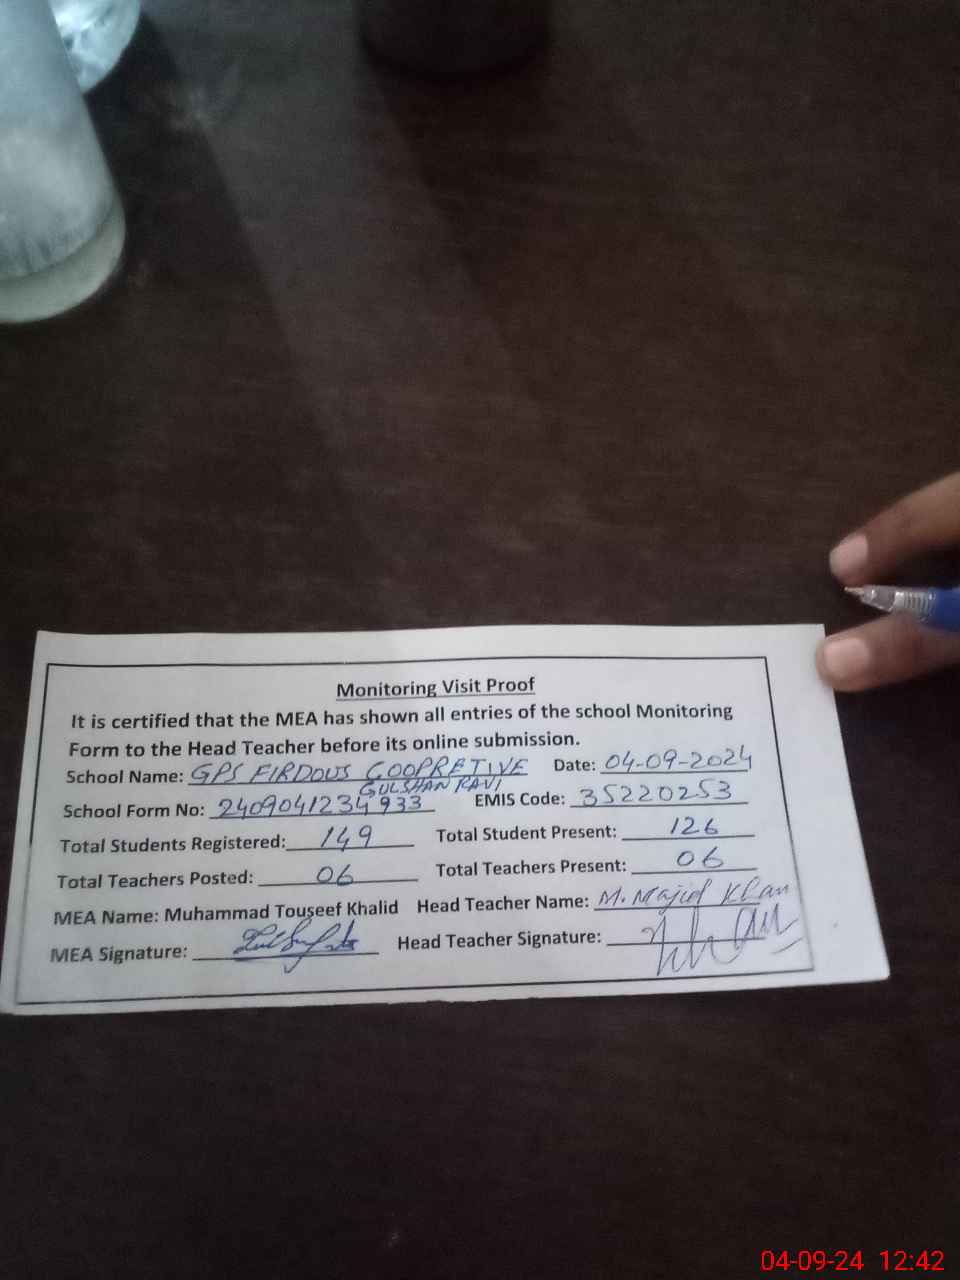 Monitoring Visit Proof
It is certified that the MEA has shown all entries of the school Monitoring
Form to the Head Teacher before its online submission.
School Name: GPS FIRDOUS COOPRETIVE Date: 04-09-2024
GULSHAN RAVI
School Form No: 2409041234933 EMIS Code: 35220253
Total Students Registered: 149 Total Student Present: 126
Total Teachers Posted: 06 Total Teachers Present: 06
MEA Name: Muhammad Touseef Khalid Head Teacher Name: M. Majid Khan
MEA Signature: Head Teacher Signature:
04-09-24 12:42